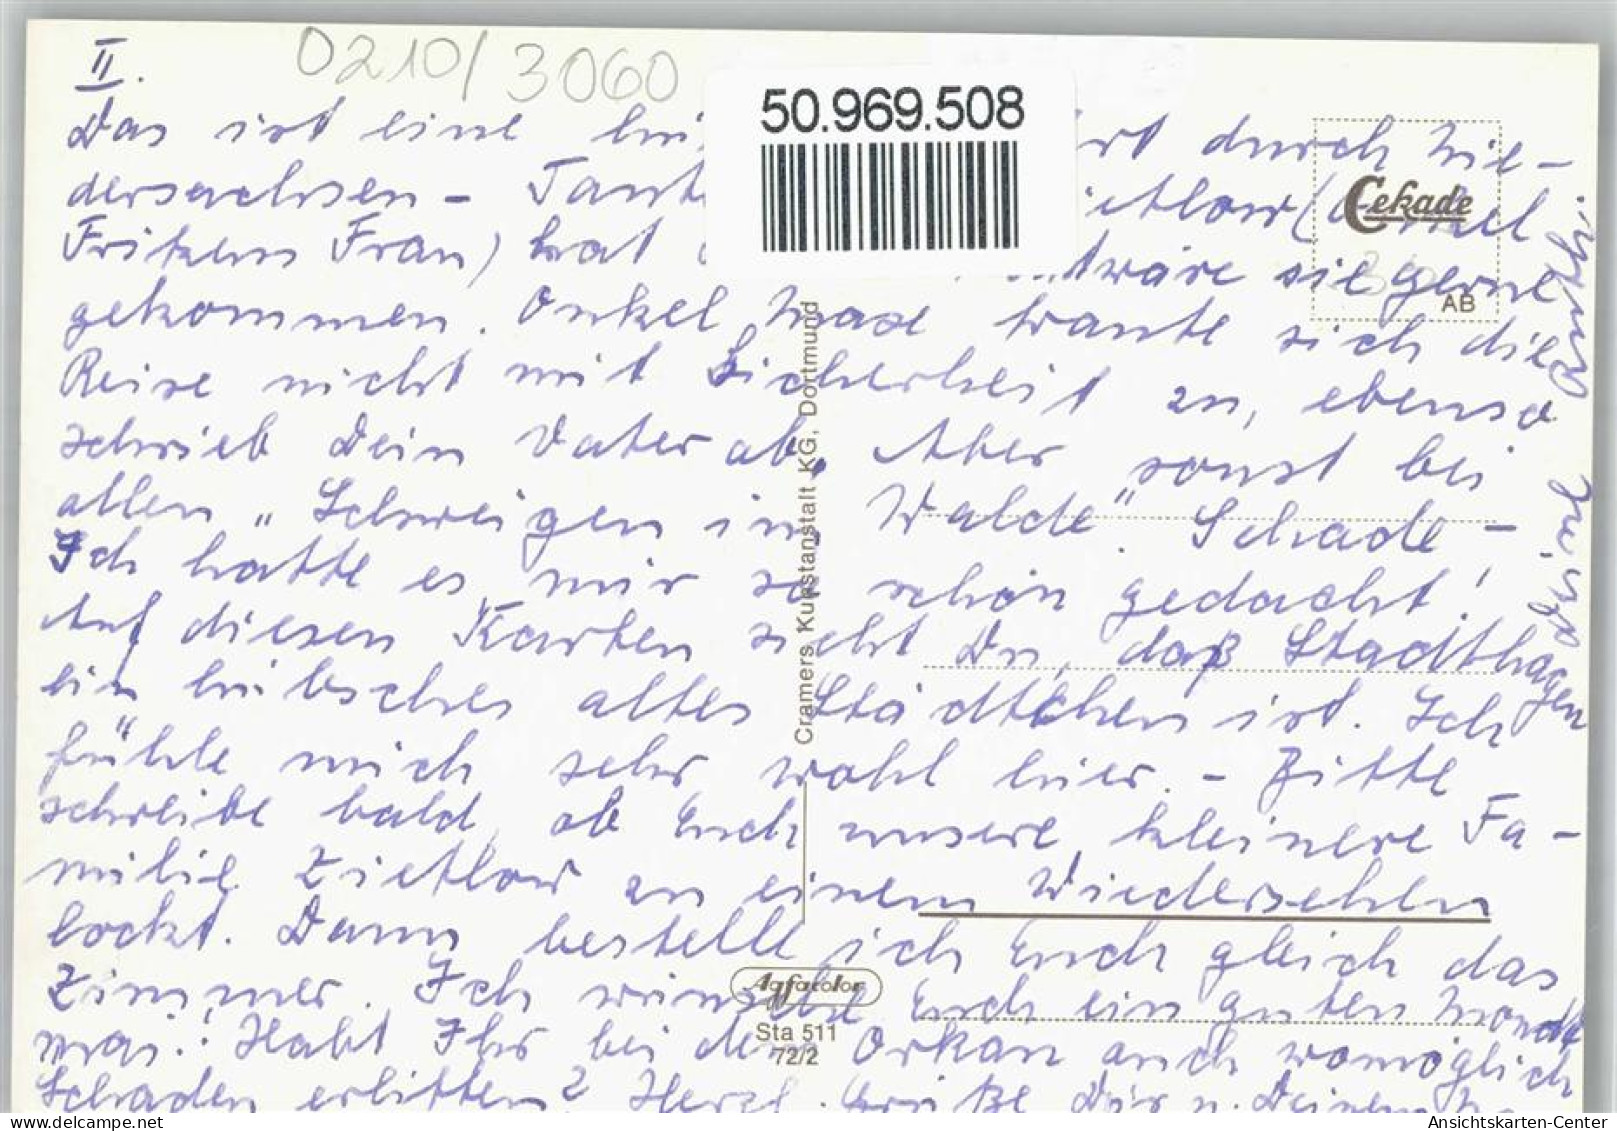 II.
0210/3060
50.969.508
Das ist eine durch Nie-
dersachsen - Tante
Fritzens Frau) hat wäre sie gerne
gekommen. Onkel Maxe traute sich die
Reise nicht mit Sicherheit zu, ebenso
schrieb Dein Vater ab. Aber sonst bei
allen „Schweigen im Walde“. Schade -
Ich hatte es mir so schön gedacht!
Auf diesen Karten siehst Du, daß Stadthagen
ein hübsches altes Städtchen ist. Ich
fühle mich sehr wohl hier. - Bitte
schreibe bald, ob Euch unsere kleinere Fa-
milie Zietlow zu einem Wiedersehen
lockt. Dann bestelle ich Euch gleich das
Zimmer. Ich wünsche Euch ein guten Monat
Mai! Habt Ihr bei dem Orkan auch womöglich
Schaden erlitten? Herzl. Grüße Dir u. Deinem
Cekade
AB
Cramers Kunstanstalt KG, Dortmund
Agfacolor
Sta 511
72/2
https://www.delcampe.net
Ansichtskarten-Center